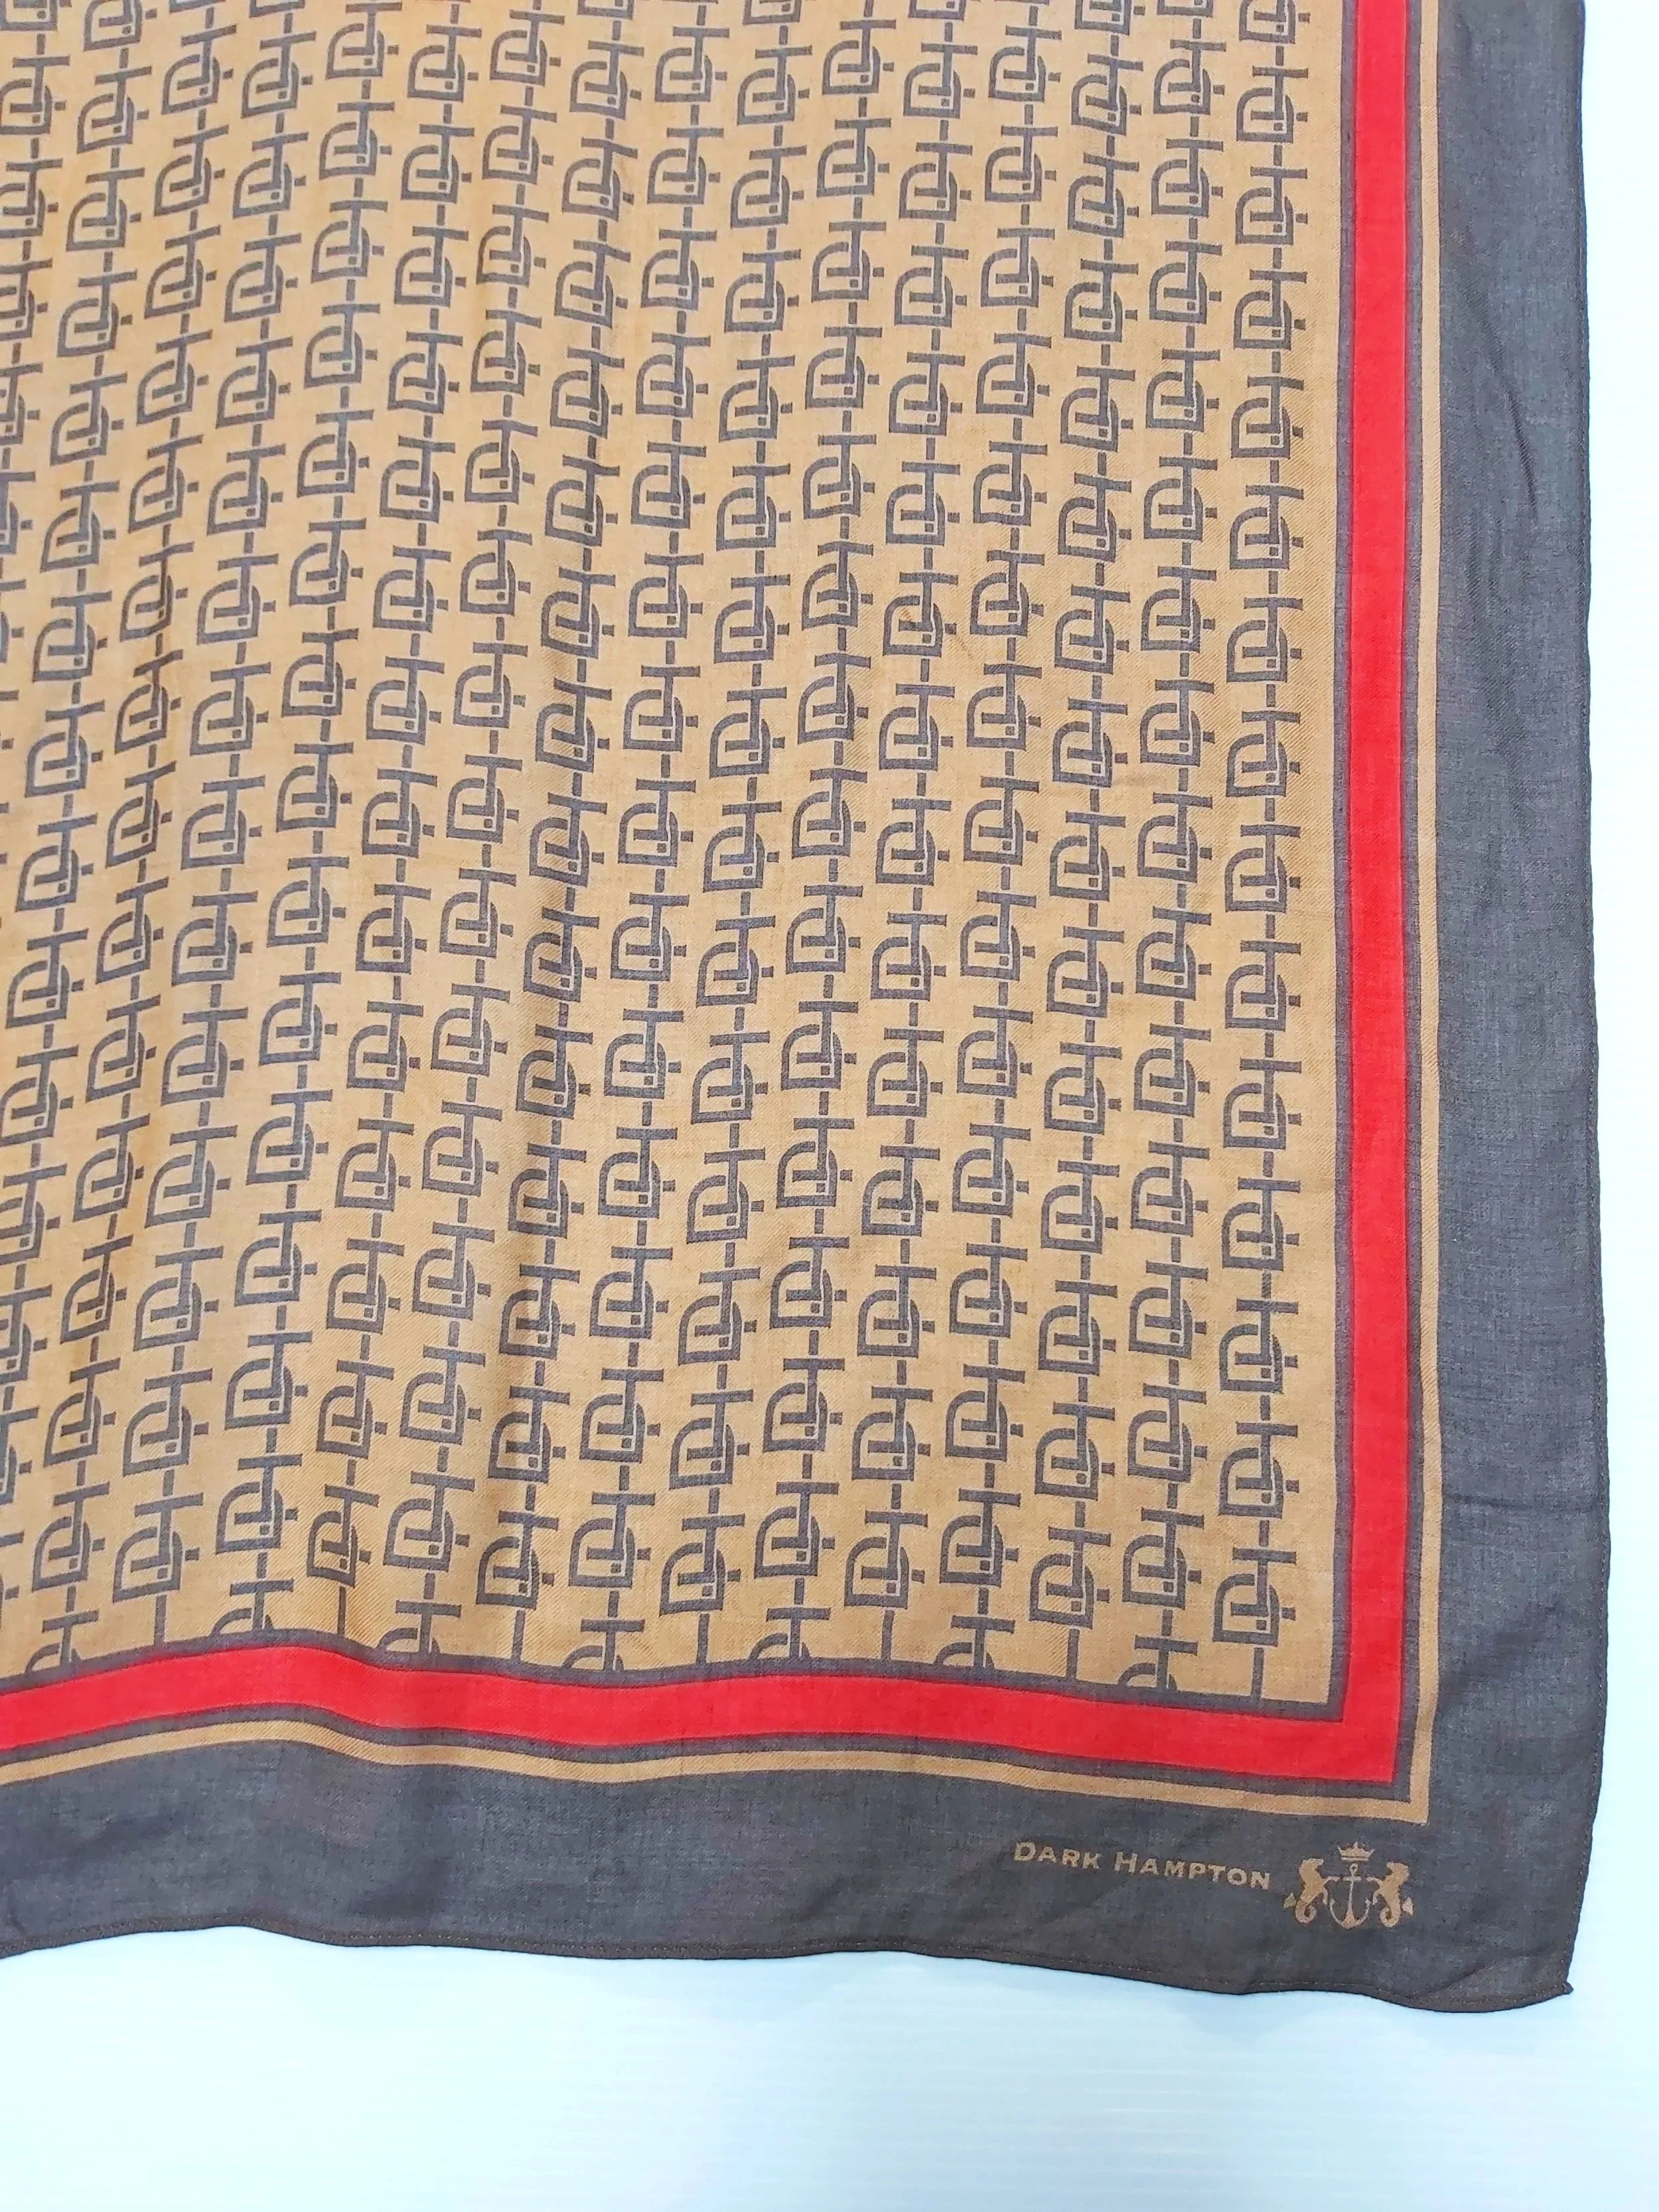 DARK HAMPTON